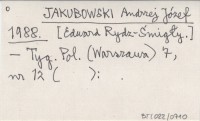 JAKUBOWSKI Andrzej Józef
1988. [Edward Rydz-Śmigły.]
— Tyg. Pol. (Warszawa) 7,
nr 12 ( ):
BJ/022/0710